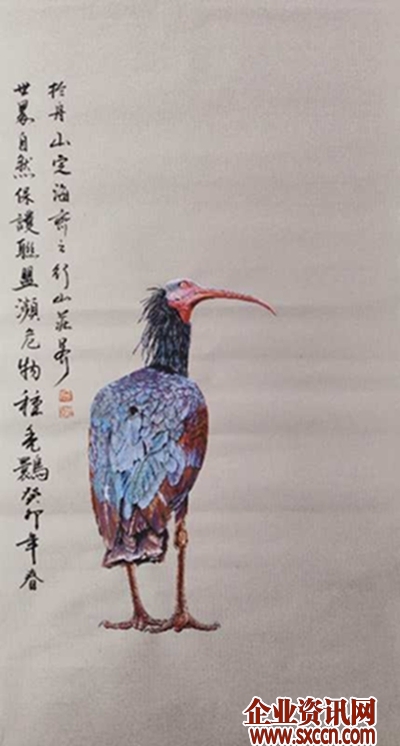 世界自然保護聯盟瀕危物種毛䴉癸卯年春
於舟山定海齋之行山莊
企业资讯网
www.sxccn.com